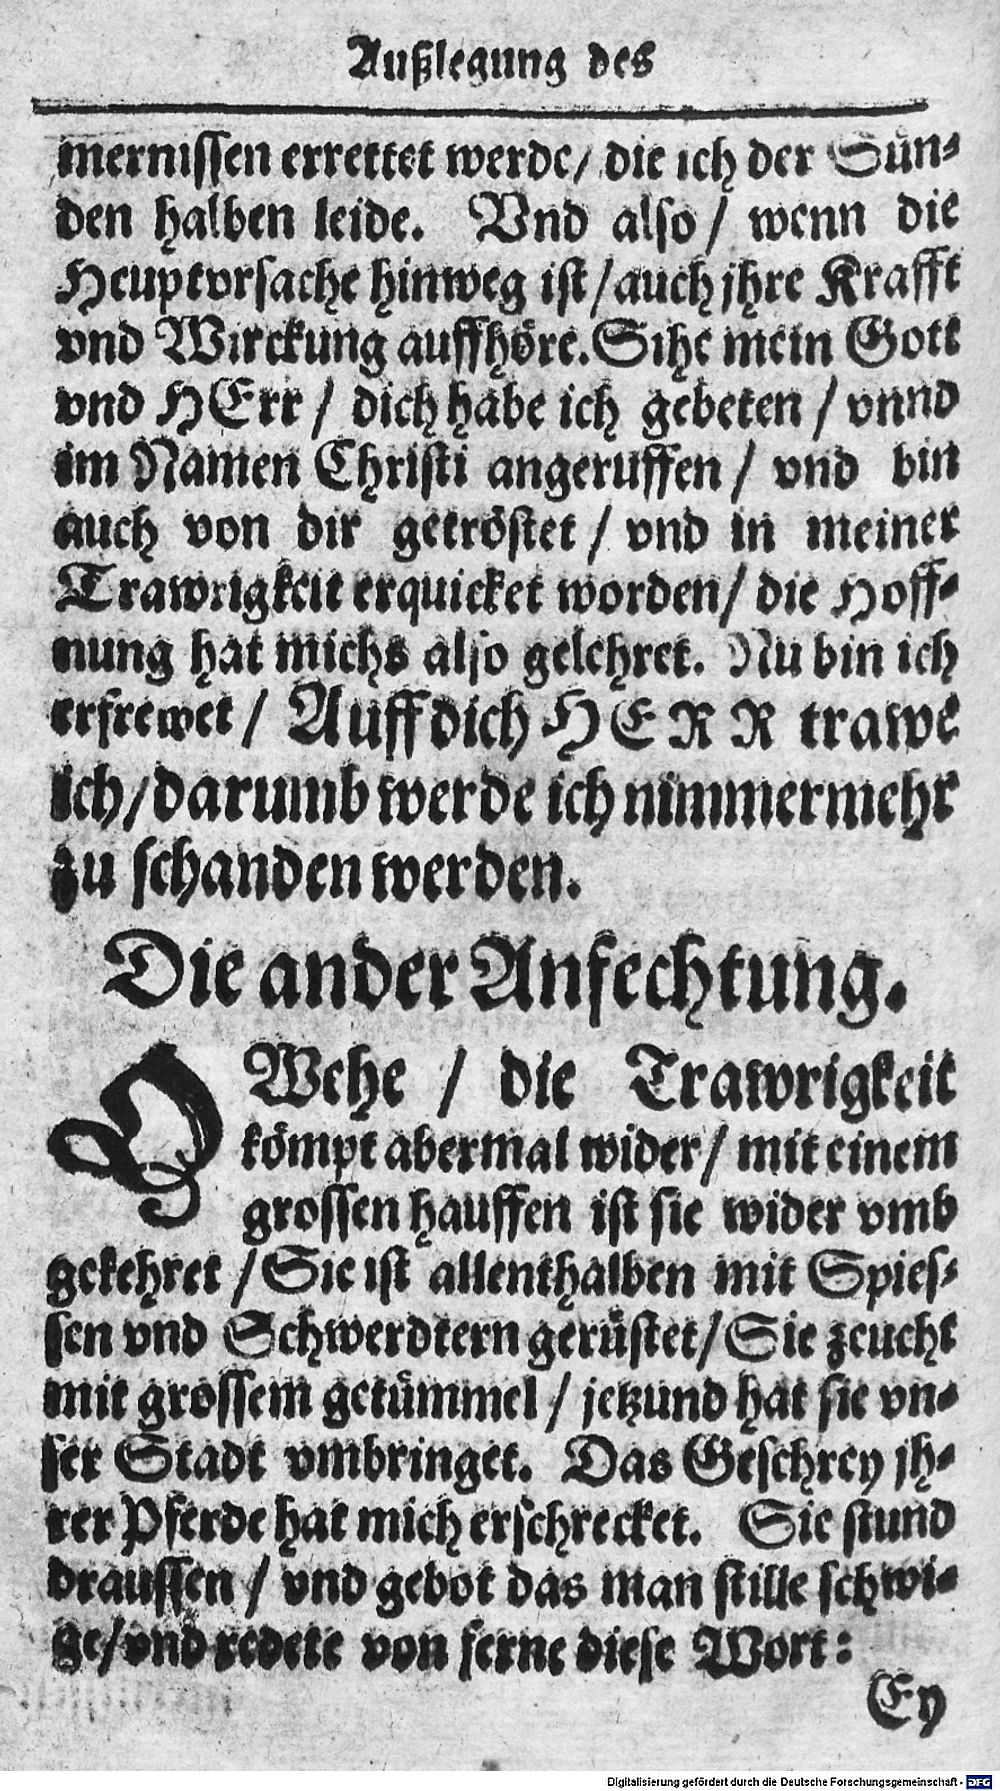 Außlegung des
mernissen errettet werde/ die ich der Sün-
den halben leide. Vnd also / wenn die
Heuptvrsache hinweg ist/auch jhre Krafft
vnd Wirckung auffhöre. Sihe mein Gott
vnd HErr / dich habe ich gebeten / vnnd
im Namen Christi angeruffen / vnd bin
auch von dir getröstet / vnd in meiner
Trawrigkeit erquicket worden/ die Hoff-
nung hat michs also gelehret. Nu bin ich
erfrewet / Auff dich HERR trawe
ich/darumb werde ich nimmermehr
zu schanden werden.
Die ander Anfechtung.
O Wehe / die Trawrigkeit
kömpt abermal wider/ mit einem
grossen hauffen ist sie wider vmb
gekehret /Sie ist allenthalben mit Spies-
sen vnd Schwerdtern gerüstet/Sie zeucht
mit grossem getümmel / jetzund hat sie vn-
ser Stadt vmbringet. Das Geschrey jh-
rer Pferde hat mich erschrecket. Sie stund
draussen / vnd gebot das man stille schwi-
ge/vnd redete von ferne diese Wort:
Ey
Digitalisierung gefördert durch die Deutsche Forschungsgemeinschaft - DFG